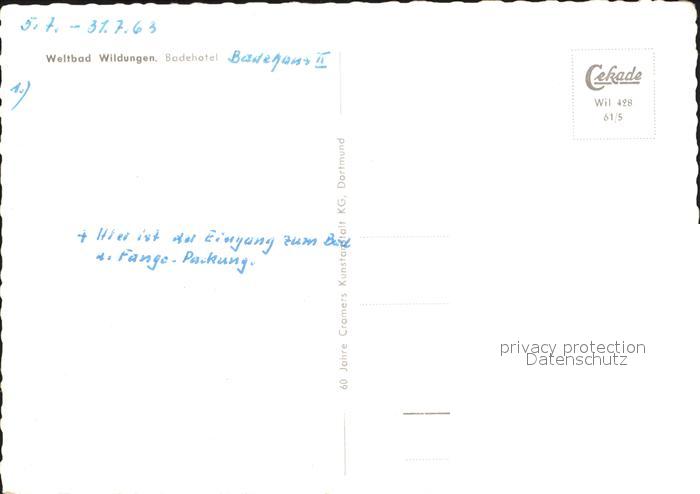 5.7. - 31.7.63
Weltbad Wildungen. Badehotel Badehaus II
1.)
Cekade
Wil 428
61/5
60 Jahre Cramers Kunstanstalt KG, Dortmund
+ Hier ist der Eingang zum Bad
u. Fango-Packung.
privacy protection
Datenschutz